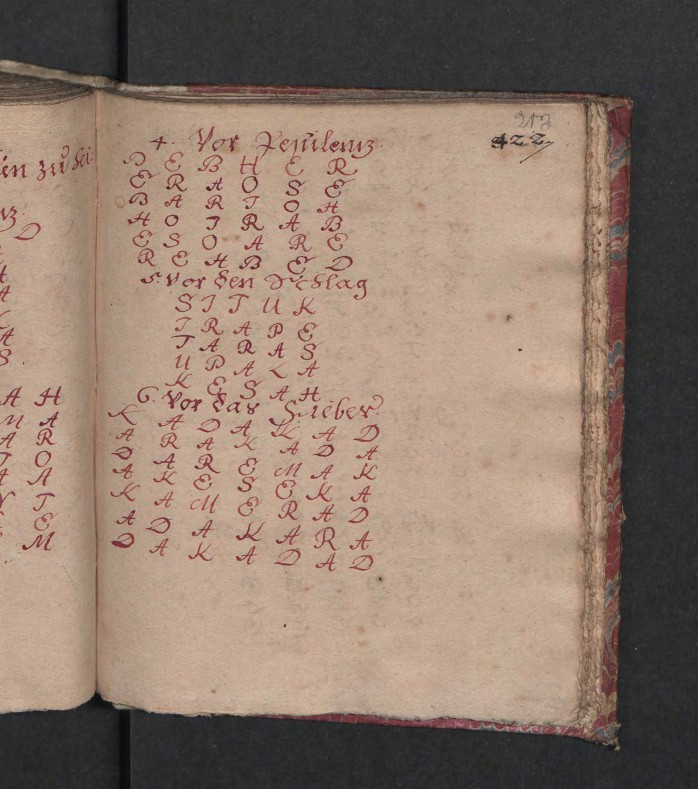 en zu hei
nz.
D
A
H
A
L
A
S
A H
M A
A R
T O
A A
V T
E
M
213
422
4. Vor Pestilentz
D E B H E R
E R A O S E
B A R T O H
H O T R A B
E S O A R E
R E H B E D
5. Vor den Schlag
S T T U K
T R A P E
T A R A S
U P A L A
K E S A H
6. Vor das Fieber
K A D A K A D
A R A K A D A
D A R E M A K
A K E S E K A
K A M E R A D
A D A K A R A
D A K A D A D